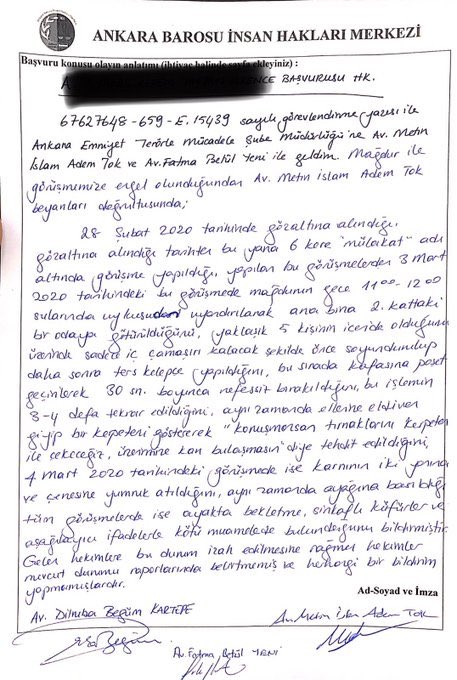 ANKARA BAROSU İNSAN HAKLARI MERKEZİ
Başvuru konusu olayın anlatımı (ihtiyaç halinde sayfa ekleyiniz) :
BAŞVURUSU HK.
67627648-659-E.15439 sayılı görevlendirme yazısı ile
Ankara Emniyet Terörle Mücadele Şube Müdürlüğü'ne Av. Metin
İslam Adem Tok ve Av. Fatma Betül Yeni ile geldim. Mağdur ile
görüşmemize engel olunduğundan Av. Metin İslam Adem Tok
beyanları doğrultusunda;
28 Şubat 2020 tarihinde gözaltına alındığı
gözaltına alındığı tarihten bu yana 6 kere "mülakat" adı
altında görüşme yapıldığı, yapılan bu görüşmelerden 3 Mart
2020 tarihindeki bu görüşmede mağdurun gece 11:00-12:00
sularında uykusundan uyandırılarak ana bina 2. kattaki
bir odaya götürüldüğünü, yaklaşık 5 kişinin içeride olduğunu
üzerinde sadece iç çamaşırı kalacak şekilde önce soyundurulup
daha sonra ters kelepçe yapıldığını, bu sırada kafasına poşet
geçirilerek 30 sn. boyunca nefessiz bırakıldığını, bu işlemin
3-4 defa tekrar edildiğini, aynı zamanda ellerine eldiven
giyip bir kerpeteni göstererek "konuşmazsan tırnaklarını kerpeten
ile çekeceğiz, üzerimize kan bulaşmasın" diye tehdit edildiğini,
4 Mart 2020 tarihindeki görüşmede ise karnının iki yanına
ve çenesine yumruk atıldığını, aynı zamanda ayağına basıldığı
tüm görüşmelerde ise ayakta bekletme, sinkaflı küfürler ve
aşağılayıcı ifadelerle kötü muamelede bulunduğunu bildirmiştir.
Gelen hekimlere bu durum izah edilmesine rağmen hekimler
mevcut durumu raporlarında belirtmemiş ve herhangi bir bildirim
yapmamışlardır.
Ad-Soyad ve İmza
Av. Dilruba Begüm KARTEPE
Av. Metin İslam Adem TOK
Av. Fatma Betül YENİ